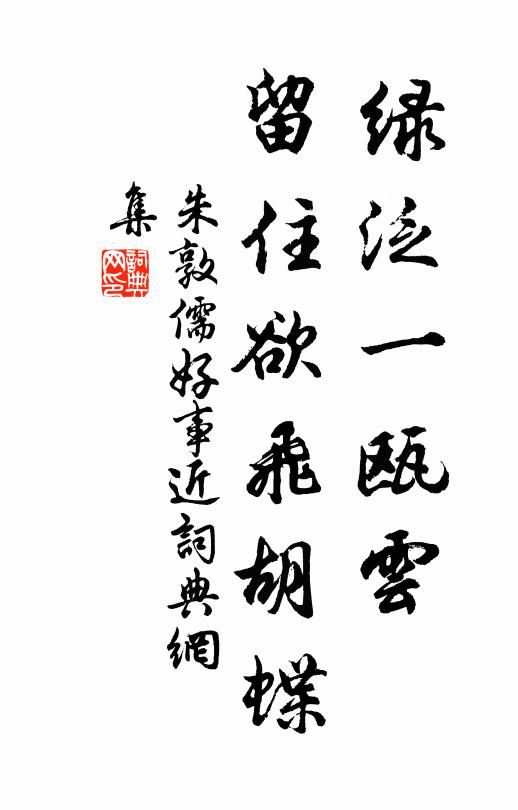 绿泛一瓯雲
留住欲飛胡蝶
朱敦儒好事近詞典網
集
詞典網印